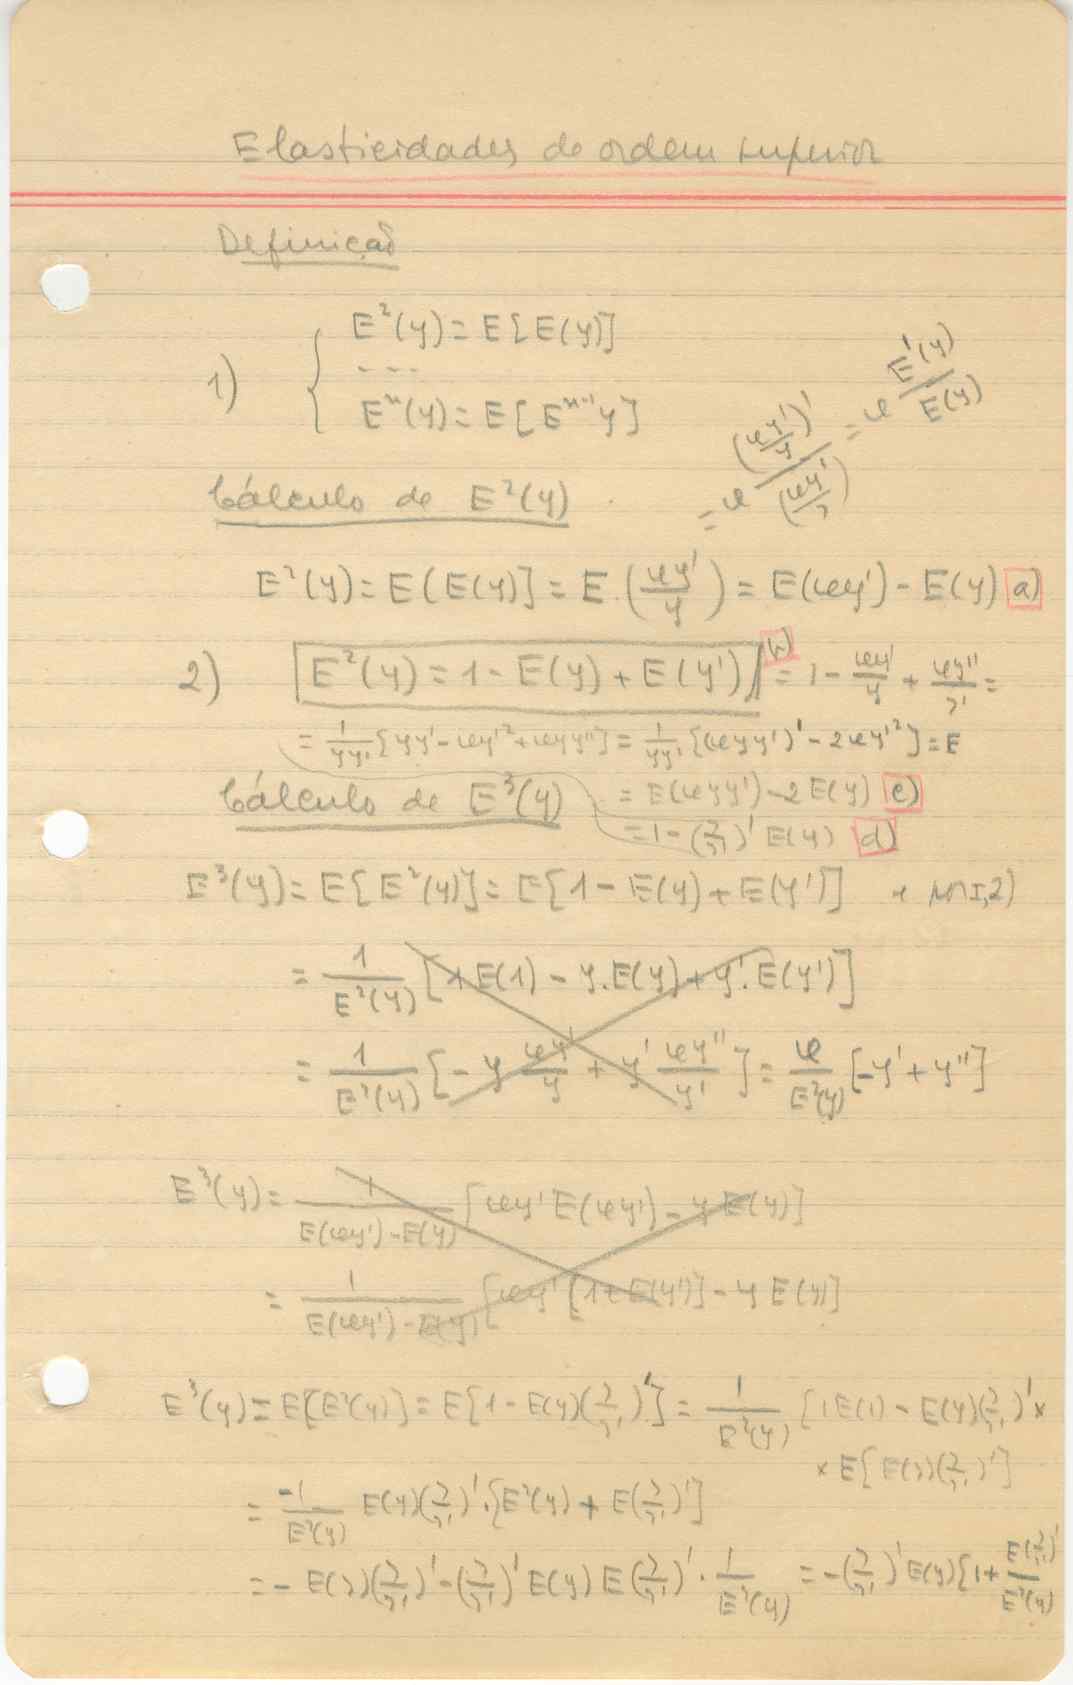 Elasticidades de ordem superior
Definição
1) { E²(y) = E[E(y)]
- - -
Eⁿ(y) = E[Eⁿ⁻¹y]
= x (xy'/y)' / (xy'/y) = x E'(y)/E(y)
Cálculo de E²(y)
E²(y) = E(E(y)] = E.(xy'/y) = E(xy') - E(y) a)
2) E²(y) = 1 - E(y) + E(y') b) = 1 - xy'/y + xy''/y' =
= 1/yy' [yy' - xy'² + xyy''] = 1/yy' [(xyy')' - 2xy'²] = E
Cálculo de E³(y) = E(xyy') - 2E(y) c)
= 1 - (y/y')' E(y) d)
E³(y) = E[E²(y)] = E[1 - E(y) + E(y')]
= 1/E²(y) [1E(1) - y.E(y) + y'.E(y')]
= 1/E²(y) [- y xy'/y + y' xy''/y'] = x/E²(y) [-y' + y'']
E³(y) = 1/E(xy')-E(y) [xy' E(xy') - y E(y)]
= 1/E(xy')-E(y) [xy' [1+E(y')] - y E(y)]
E³(y) = E[E²(y)] = E[1 - E(y)(y/y')'] = 1/E²(y) [1E(1) - E(y)(y/y')' ×
× E[E(y)(y/y')']
= -1/E²(y) E(y)(y/y')'.[E²(y) + E(y/y')']
= - E(y)(y/y')' - (y/y')' E(y) E(y/y')' . 1/E²(y) = -(y/y')' E(y)[1 + E(y/y')'/E²(y)